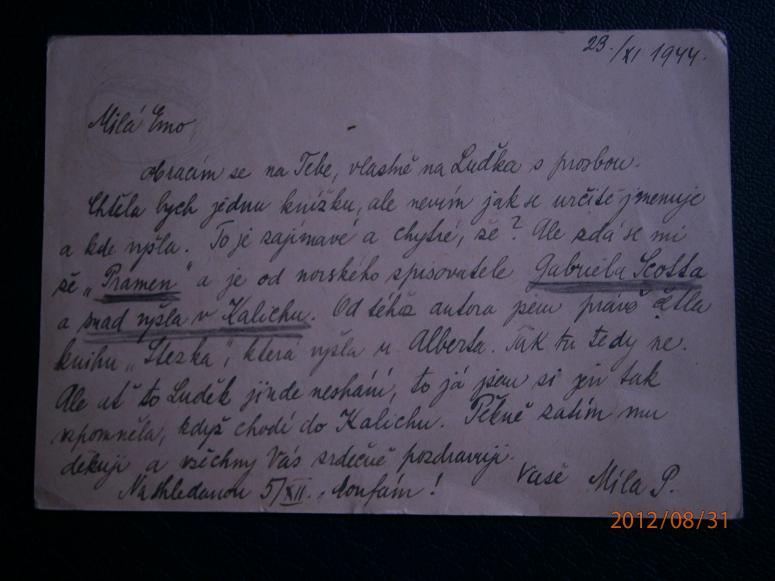 23./XI 1944.
Milá Emo,
obracím se na Tebe, vlastně na Luďka s prosbou.
Chtěla bych jednu knížku, ale nevím jak se určitě jmenuje
a kde vyšla. To je zajímavé a chytré, že? Ale zdá se mi
že „Pramen" a je od norského spisovatele Gabriela Scotta
a snad vyšla v Kalichu. Od téhož autora jsem právě četla
knihu „Stezka", která vyšla u Alberta. Tak tu tedy ne.
Ale ať to Luděk jinde neshání, to já jsem si jen tak
vzpomněla, když chodí do Kalichu. Pěkně zatím mu
děkuji a všechny Vás srdečně pozdravuji.
Vaše Míla P.
Na shledanou 5/XII., doufám!
2012/08/31